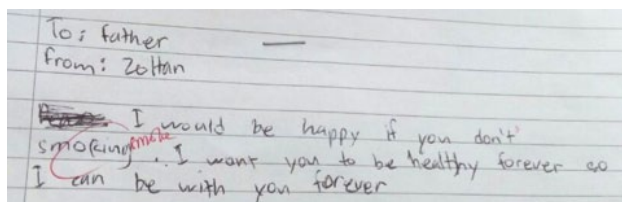 To: father
From: Zoltan
I would be happy if you don't
smoking smoke. I want you to be healthy forever so
I can be with you forever